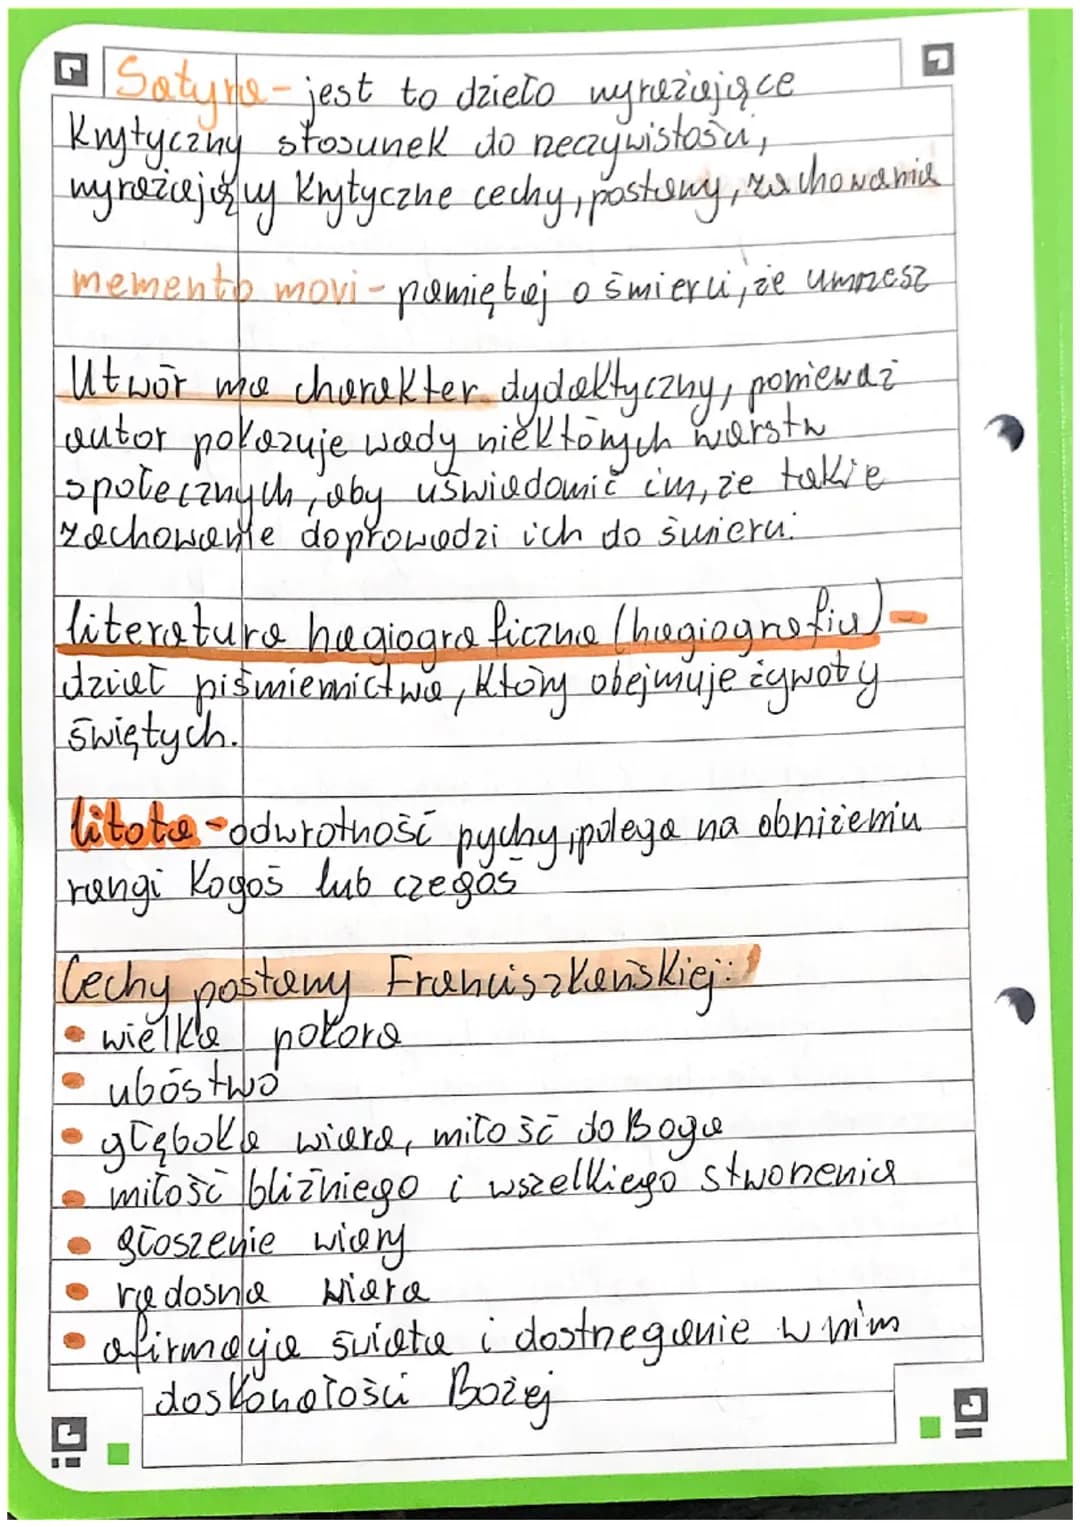 Satyra - jest to dzieło wyrażające
Krytyczny stosunek do rzeczywistości,
wyrażający Krytyczne cechy, postawy, zachowania
memento movi - pamiętaj o śmierci, że umrzesz
Utwór ma charakter dydaktyczny, ponieważ
autor pokazuje wady niektórych warstw
społecznych, aby uświadomić im, że takie
zachowanie doprowadzi ich do śmierci.
literatura hagiograficzna (hagiografia) -
dział piśmiennictwa, który obejmuje żywoty
świętych.
litota - odwrotność pychy, polega na obniżeniu
rangi Kogoś lub czegoś
Cechy postawy Franciszkańskiej:
• wielka pokora
• ubóstwo
• głęboka wiara, miłość do Boga
• miłość bliźniego i wszelkiego stworzenia
• głoszenie wiary
• radosna wiara
• afirmacja świata i dostrzeganie w nim
doskonałości Bożej